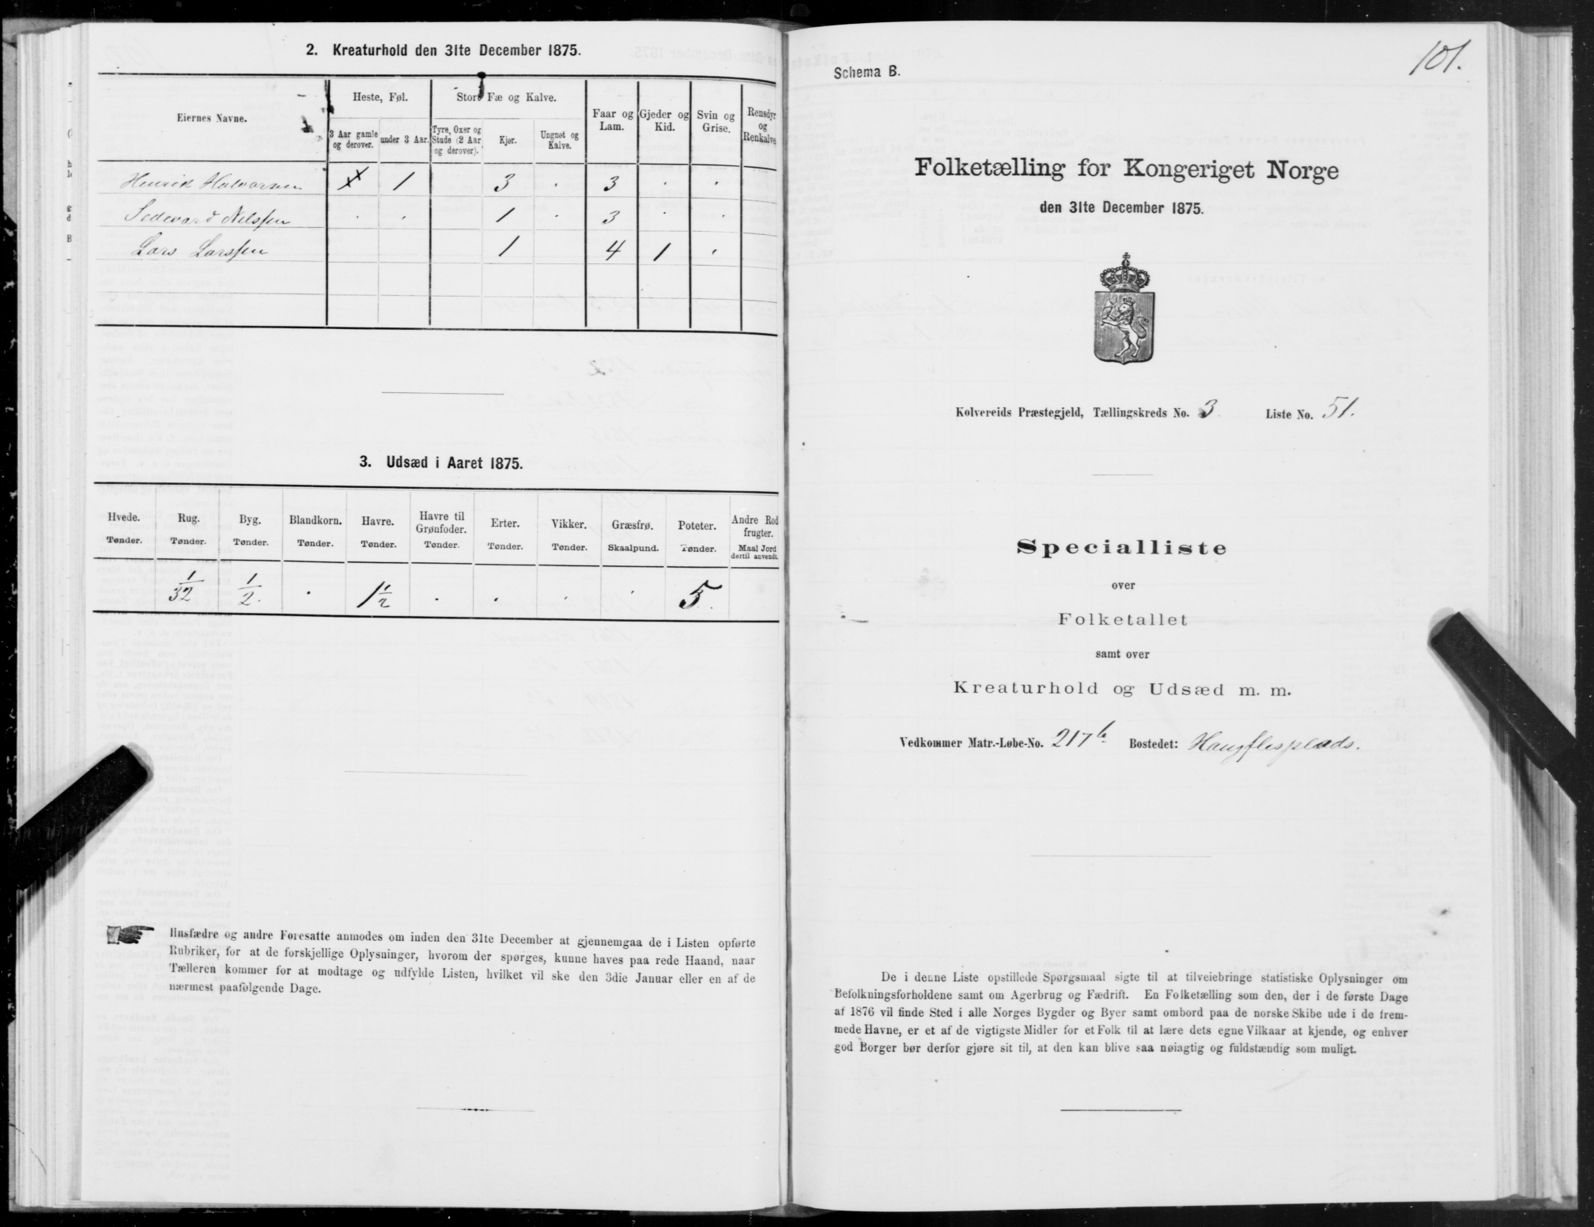 2. Kreaturhold den 31te December 1875.
Eiernes Navne.
Heste, Føl.
Stort Fæ og Kalve.
Faar og Lam.
Gjeder og Kid.
Svin og Grise.
Rensdyr og Renkalve
3 Aar gamle og derover.
under 3 Aar.
Tyre, Oxer og Stude (2 Aar og derover).
Kjør.
Ungnøt og Kalve.
Henrik Halvorsen 1 3 . 3 . .
Nilssen . . 1 . 3 . .
Lars Larssen 1 4 1 .
3. Udsæd i Aaret 1875.
Hvede. Rug. Byg. Blandkorn. Havre. Havre til Grønfoder. Erter. Vikker. Græsfrø. Poteter. Andre Rod frugter.
Tønder. Tønder. Tønder. Tønder. Tønder. Tønder. Tønder. Tønder. Skaalpund. Tønder. Maal Jord dertil anvendt.
1/32 1/2. . 1 1/2 . . . . 5.
Husfædre og andre Foresatte anmodes om inden den 31te December at gjennemgaa de i Listen opførte
Rubriker, for at de forskjellige Oplysninger, hvorom der spørges, kunne haves paa rede Haand, naar
Tælleren kommer for at modtage og udfylde Listen, hvilket vil ske den 3die Januar eller en af de
nærmest paafølgende Dage.
101.
Schema B.
Folketælling for Kongeriget Norge
den 31te December 1875.
Kolvereids Præstegjeld, Tællingskreds No. 3. Liste No. 51.
Specialliste
over
Folketallet
samt over
Kreaturhold og Udsæd m. m.
Vedkommer Matr.-Løbe-No. 217b Bostedet:
De i denne Liste opstillede Spørgsmaal sigte til at tilveiebringe statistiske Oplysninger om
Befolkningsforholdene samt om Agerbrug og Fædrift. En Folketælling som den, der i de første Dage
af 1876 vil finde Sted i alle Norges Bygder og Byer samt ombord paa de norske Skibe ude i de frem-
mede Havne, er et af de vigtigste Midler for et Folk til at lære dets egne Vilkaar at kjende, og enhver
god Borger bør derfor gjøre sit til, at den kan blive saa nøiagtig og fuldstændig som muligt.